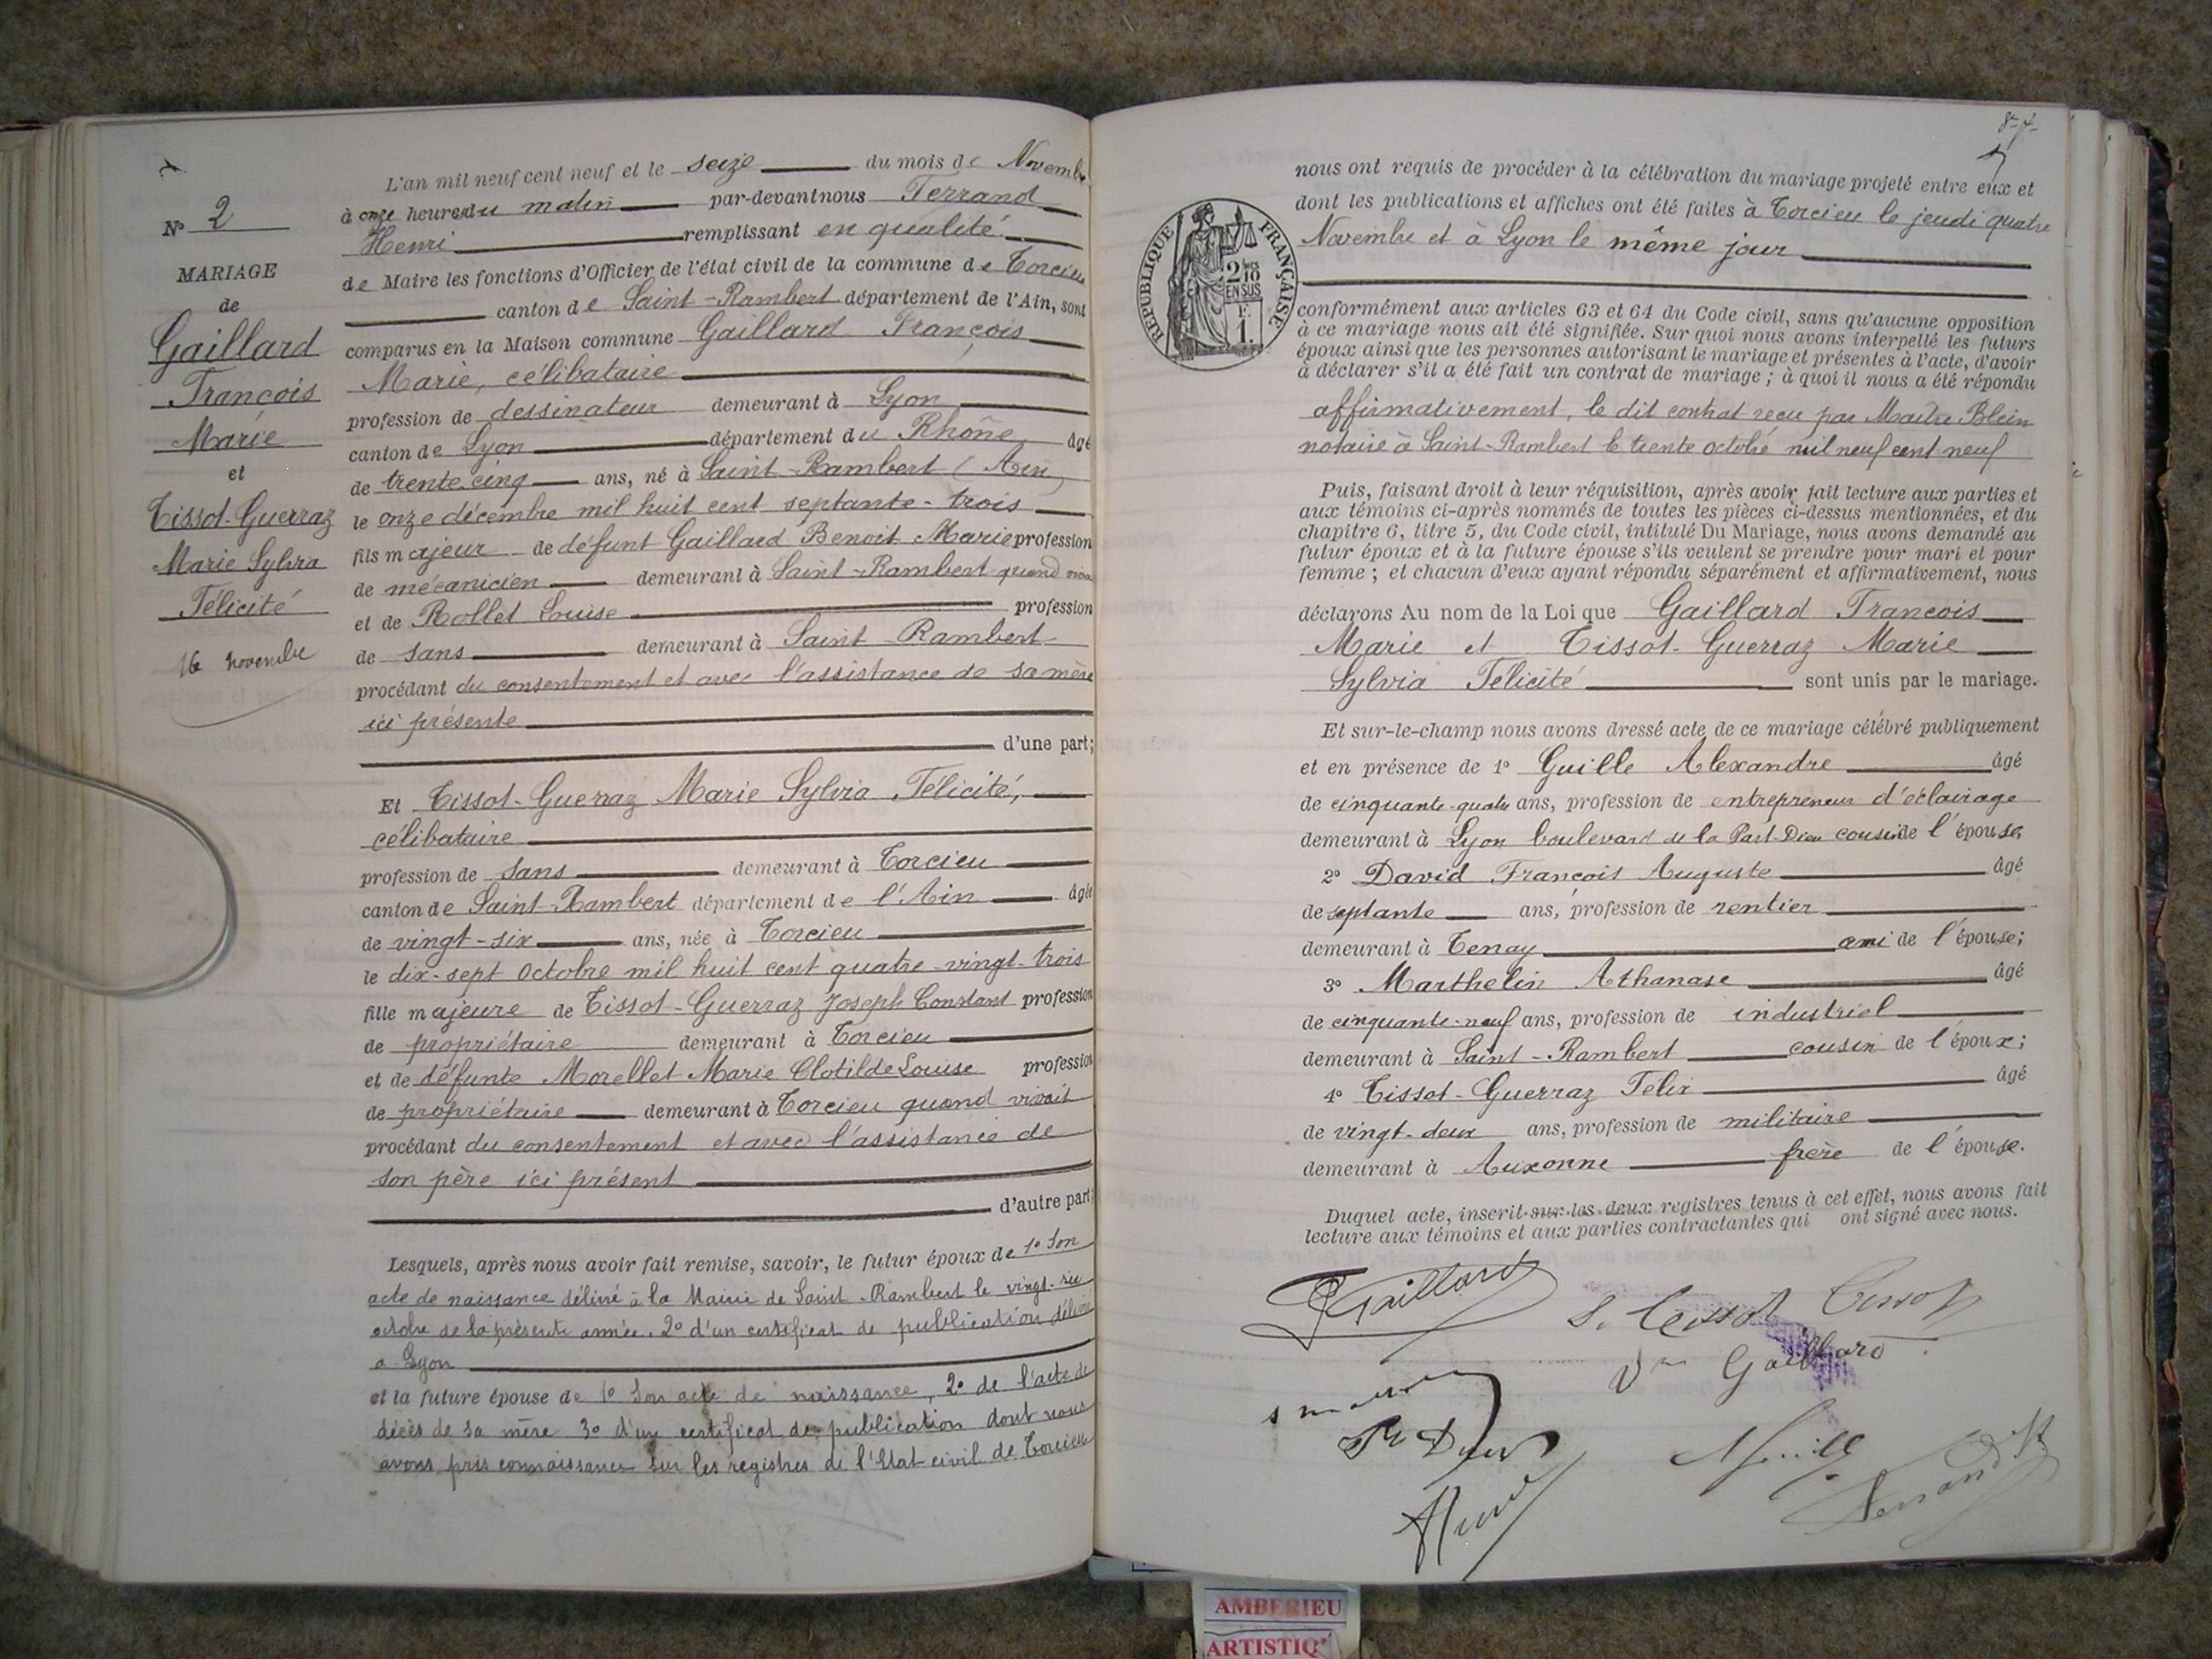 N° 2
MARIAGE
de
Gaillard
François
Marie
et
Tissot-Guerraz
Marie Sylvia
Félicité
16 novembre
L'an mil neuf cent neuf et le seize du mois de Novemb
à onze heures du matin par-devant nous Ferrand
Henri remplissant en qualité
de Maire les fonctions d'Officier de l'état civil de la commune de Torcieu
canton de Saint-Rambert département de l'Ain, sont
comparus en la Maison commune Gaillard François
Marie, célibataire
profession de dessinateur demeurant à Lyon
canton de Lyon département du Rhône âgé
de trente cinq ans, né à Saint-Rambert (Ain)
le onze décembre mil huit cent septante-trois
fils majeur de défunt Gaillard Benoit Marie profession
de mécanicien demeurant à Saint-Rambert quand
et de Rollet Louise profession
de sans demeurant à Saint-Rambert
procédant du consentement et avec l'assistance de sa mère
ici présente
d'une part;
Et Tissot-Guerraz Marie Sylvia Félicité,
célibataire
profession de sans demeurant à Torcieu
canton de Saint-Rambert département de l'Ain âgée
de vingt-six ans, née à Torcieu
le dix-sept Octobre mil huit cent quatre-vingt-trois
fille majeure de Tissot-Guerraz Joseph Constant profession
de propriétaire demeurant à Torcieu
et de défunte Morellet Marie Clotilde Louise profession
de propriétaire demeurant à Torcieu quand vivait
procédant du consentement et avec l'assistance de
son père ici présent
d'autre part;
Lesquels, après nous avoir fait remise, savoir, le futur époux de 1° son
acte de naissance délivré à la Mairie de Saint-Rambert le vingt-six
octobre de la présente année. 2° d'un certificat de publication délivré
à Lyon
et la future épouse de 1° son acte de naissance, 2° de l'acte de
décès de sa mère 3° d'un certificat de publication dont nous
avons pris connaissance sur les registres de l'Etat civil de Torcieu
RÉPUBLIQUE FRANÇAISE
2/10
EN SUS
1.
nous ont requis de procéder à la célébration du mariage projeté entre eux et
dont les publications et affiches ont été faites à Torcieu le jeudi quatre
Novembre et à Lyon le même jour
conformément aux articles 63 et 64 du Code civil, sans qu'aucune opposition
à ce mariage nous ait été signifiée. Sur quoi nous avons interpellé les futurs
époux ainsi que les personnes autorisant le mariage et présentes à l'acte, d'avoir
à déclarer s'il a été fait un contrat de mariage; à quoi il nous a été répondu
affirmativement, le dit contrat reçu par Maître Blein
notaire à Saint-Rambert le trente octobre mil neuf cent neuf
Puis, faisant droit à leur réquisition, après avoir fait lecture aux parties et
aux témoins ci-après nommés de toutes les pièces ci-dessus mentionnées, et du
chapitre 6, titre 5, du Code civil, intitulé Du Mariage, nous avons demandé au
futur époux et à la future épouse s'ils veulent se prendre pour mari et pour
femme; et chacun d'eux ayant répondu séparément et affirmativement, nous
déclarons Au nom de la Loi que Gaillard François
Marie et Tissot-Guerraz Marie
Sylvia Félicité sont unis par le mariage.
Et sur-le-champ nous avons dressé acte de ce mariage célébré publiquement
et en présence de 1° Guille Alexandre âgé
de cinquante-quatre ans, profession de entrepreneur d'éclairage
demeurant à Lyon boulevard de la Part-Dieu cousin de l'épouse,
2° David François Auguste âgé
de septante ans, profession de rentier
demeurant à Tenay ami de l'épouse;
3° Marthelin Athanase âgé
de cinquante-neuf ans, profession de industriel
demeurant à Saint-Rambert cousin de l'époux;
4° Tissot-Guerraz Félix âgé
de vingt-deux ans, profession de militaire
demeurant à Auxonne frère de l'épouse.
Duquel acte, inscrit sur les deux registres tenus à cet effet, nous avons fait
lecture aux témoins et aux parties contractantes qui ont signé avec nous.
Gaillard
S. Tissot Tissot
Vve Gaillard
Guille
Ferrand H
AMBERIEU
ARTISTIQ